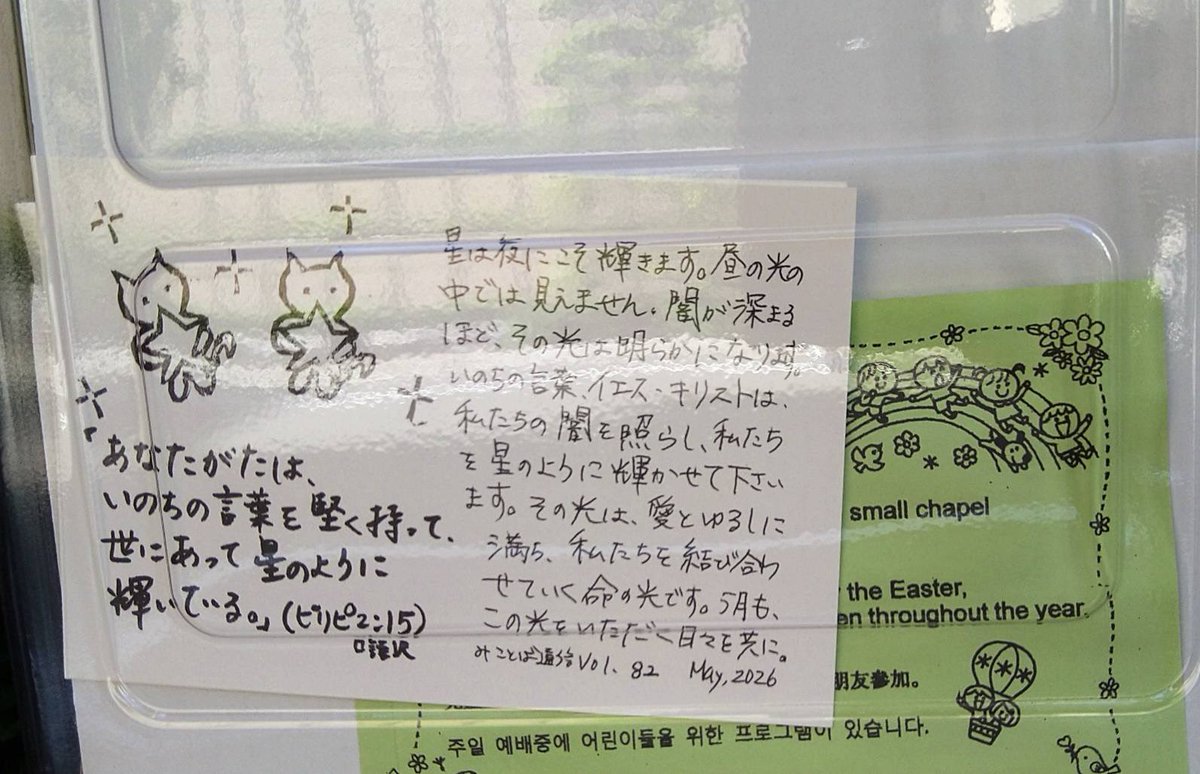 あなたがたは、
いのちの言葉を堅く持って、
世にあって星のように
輝いている。」(ピリピ2:15)
口語訳
星は夜にこそ輝きます。昼の光の
中では見えません。闇が深まる
ほど、その光は明らかになります。
いのちの言葉、イエス・キリストは、
私たちの闇を照らし、私たち
を星のように輝かせて下さい
ます。その光は、愛とゆるしに
満ち、私たちを結び合わ
せていく命の光です。5月も、
この光をいただく日々を共に。
みことば通信 Vol. 82 May, 2026
small chapel
the Easter,
en throughout the year.
朋友参加。
주일 예배중에 어린이들을 위한 프로그램이 있습니다.